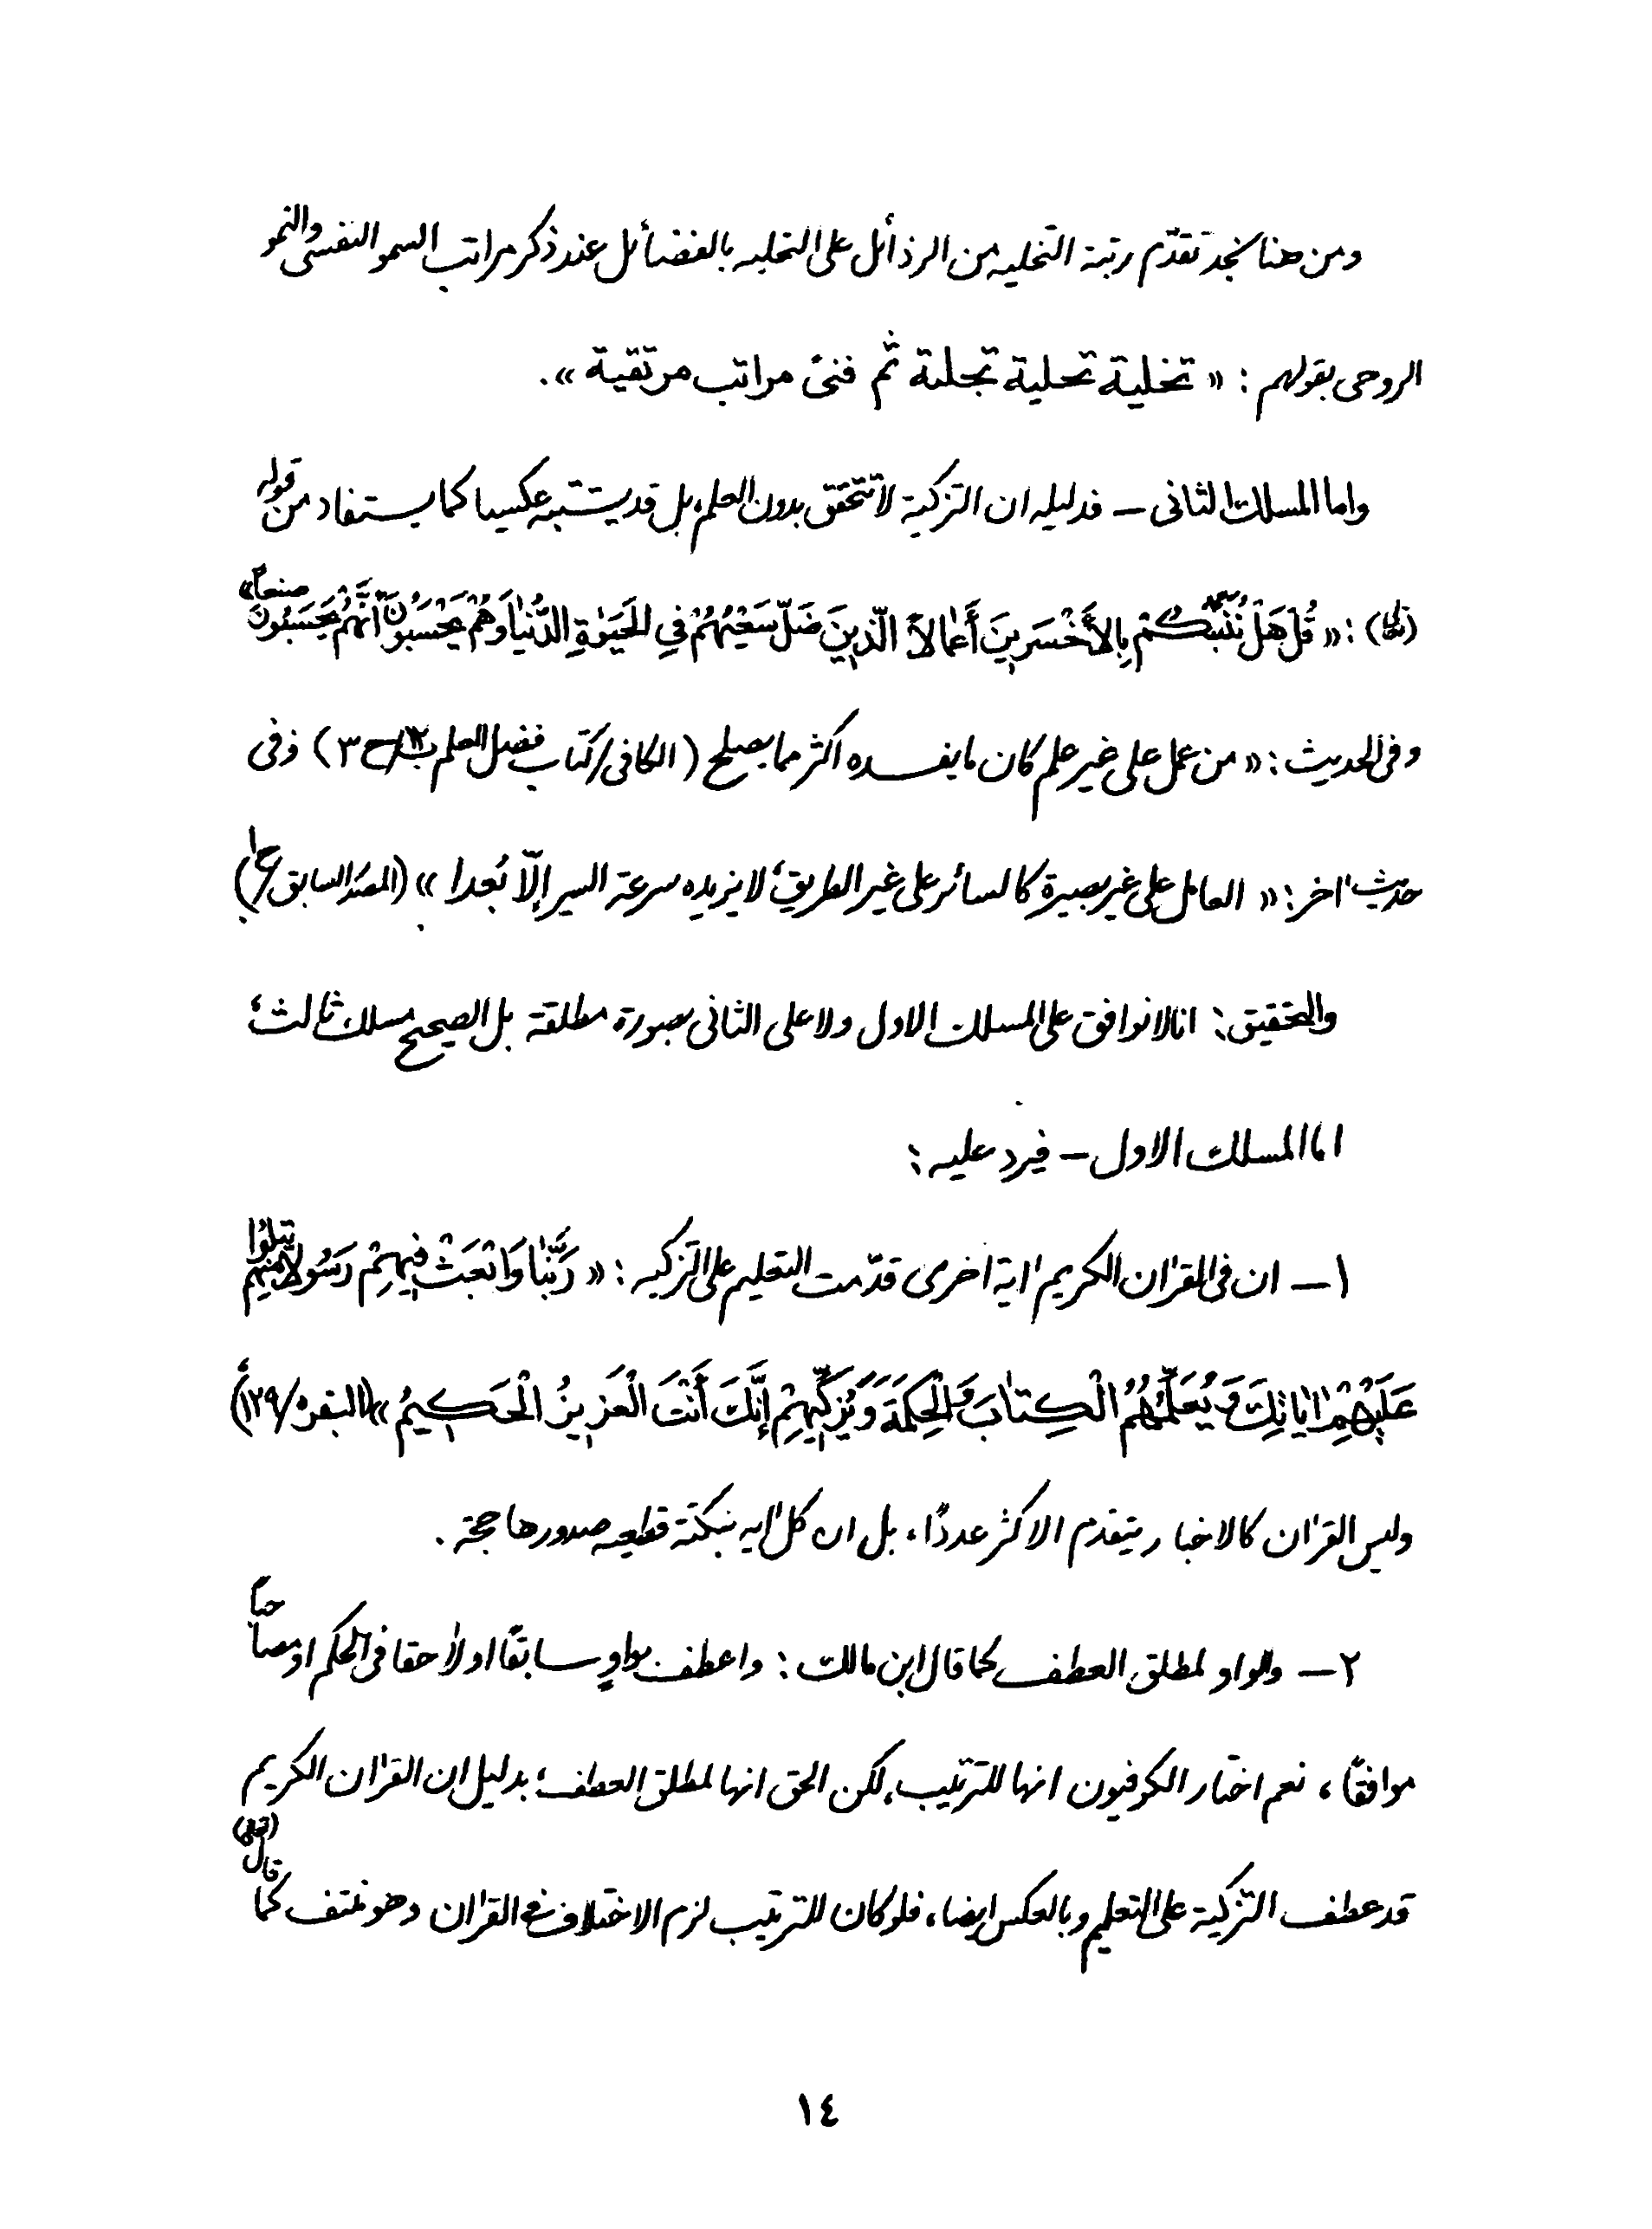 ومن هنا نجد تقدّم رتبة التخليه من الرذائل على التحليه بالفضائل عند ذكر مراتب السمو النفسى والنمو
الروحى بقولهم : « تخلية تحلية تجلية ثم فنىً مراتب مرتقية ».
واما المسلك الثانى – فدليله ان التزكية لا تتحقق بدون العلم، بل قد يستتبع عكسيا كما يستفاد من قوله
(تعالى) : « قُلْ هَلْ نُنَبِّئُكُمْ بِالأَخْسَرِينَ أَعْمالاً الَّذِينَ ضَلَّ سَعْيُهُمْ فِي الْحَيَوٰةِ الدُّنْيٰا وَهُمْ يَحْسَبُونَ أَنَّهُمْ يُحْسِنُونَ صنعاً»
وفى الحديث : « من عمل على غير علم كان ما يفسده اكثر مما يصلح ( الكافى/كتاب فضل العلم ب١٢/ح٣ ) وفى
حديث اخر : « العامل على غير بصيرة كالسائر على غير الطريق، لا يزيده سرعة السير إلّا بُعدا » (المصدر السابق/ح١)
والتحقيق : انا لا نوافق على المسلك الاول ولا على الثانى بصورة مطلقة بل الصحيح مسلك ثالث،
اما المسلك الاول – فيرد عليه :
١ – ان فى القرٰان الكريم اية اخرى قدّمت التعليم على التزكيه : « رَبَّنٰا وَابْعَثْ فِيهِمْ رَسُولاً مِنْهُمْ يَتْلُوا
عَلَيْهِمْ اٰيٰاتِكَ وَيُعَلِّمُهُمُ الْكِتٰابَ وَالْحِكْمَةَ وَيُزَكِّيهِمْ إِنَّكَ أَنْتَ الْعَزِيزُ الْحَكِيمُ »(البقره/١٢٩)،
وليس القرٰان كالاخبار يتقدم الاكثر عددًا، بل ان كل اٰيه بنكتة قطعيه صدورها حجة .
٢ – والواو لمطلق العطف كما قال ابن مالك : واعطف بواوٍ سابقًا او لاحقا فى الحكم او مصاحباً
موافقًا ، نعم اختار الكوفيون انها للترتيب، لكن الحق انها لمطلق العطف؛ بدليل ان القرٰان الكريم
قد عطف التزكية على التعليم وبالعكس ايضا، فلو كان للترتيب لزم الاختلاف فى القرٰان وهو منتف كما قال (تعالى)
١٤